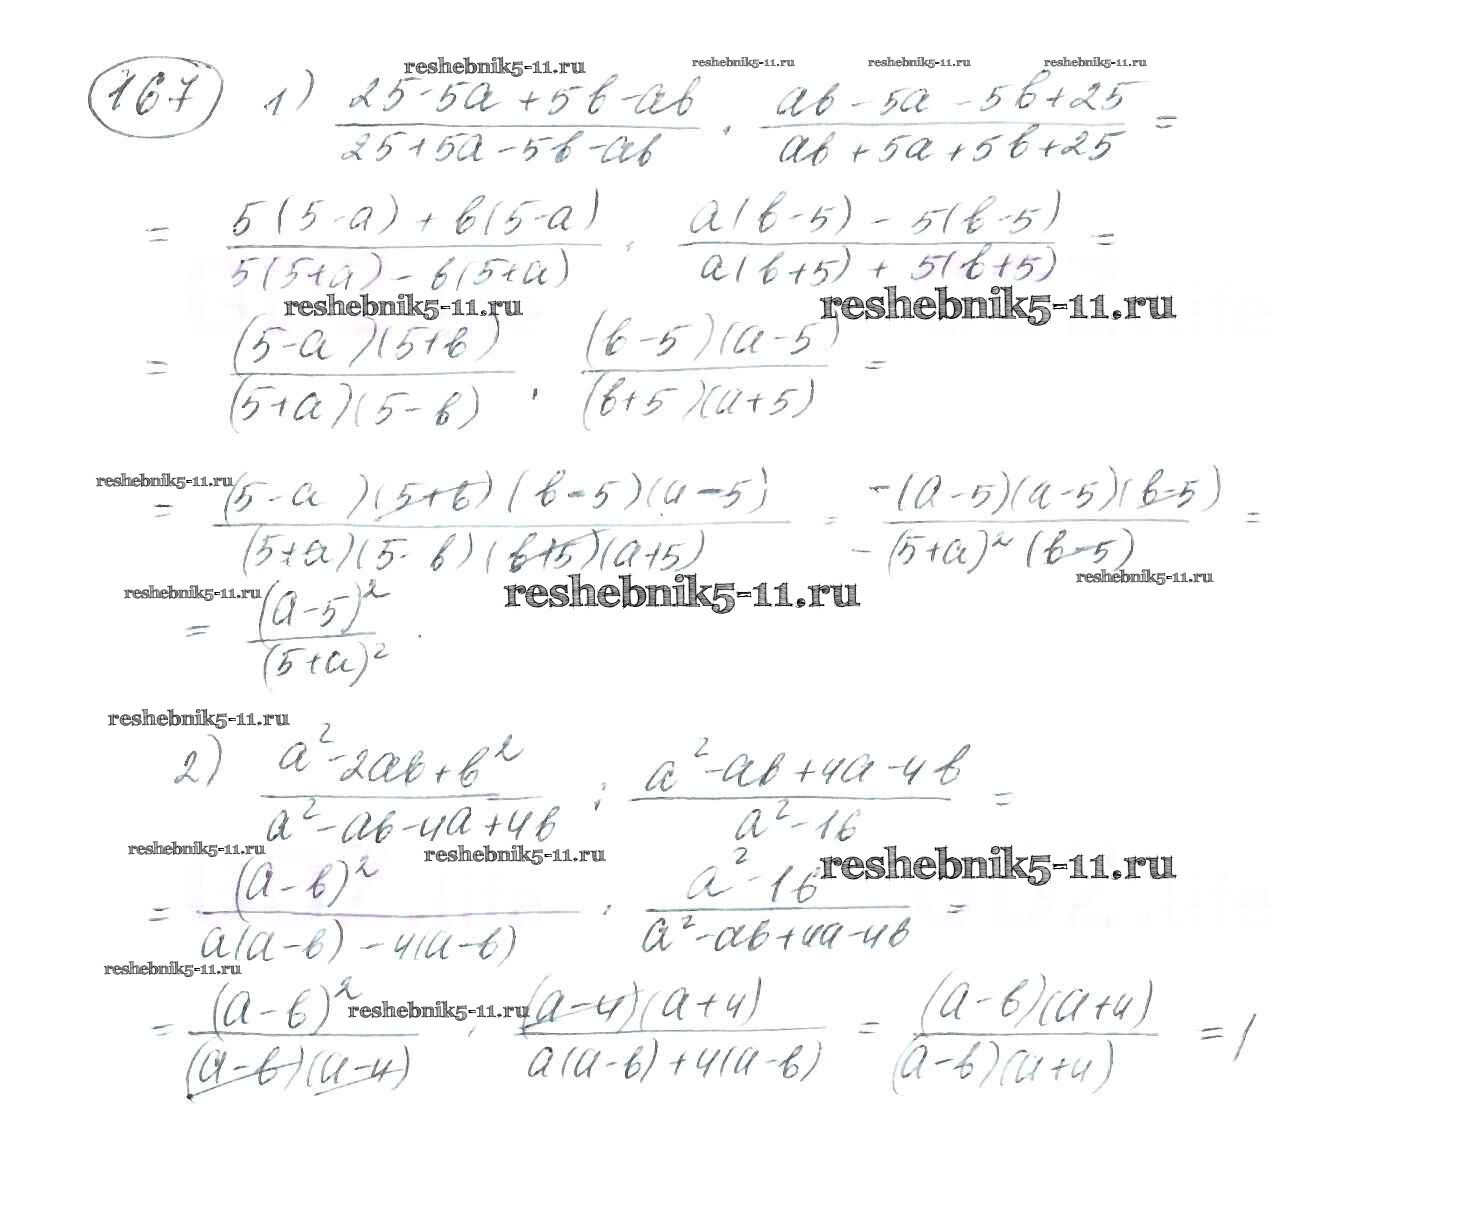 reshebnik5-11.ru reshebnik5-11.ru reshebnik5-11.ru reshebnik5-11.ru
167 1) (25-5a+5b-ab)/(25+5a-5b-ab) · (ab-5a-5b+25)/(ab+5a+5b+25) =
= (5(5-a)+b(5-a))/(5(5+a)-b(5+a)) · (a(b-5)-5(b-5))/(a(b+5)+5(b+5)) =
reshebnik5-11.ru reshebnik5-11.ru
= ((5-a)(5+b))/((5+a)(5-b)) · ((b-5)(a-5))/((b+5)(a+5)) =
reshebnik5-11.ru
= ((5-a)(5+b)(b-5)(a-5))/((5+a)(5-b)(b+5)(a+5)) = (-(a-5)(a-5)(b-5))/(-(5+a)²(b-5)) =
reshebnik5-11.ru reshebnik5-11.ru reshebnik5-11.ru
= (a-5)²/(5+a)².
reshebnik5-11.ru
2) (a²-2ab+b²)/(a²-ab-4a+4b) : (a²-ab+4a-4b)/(a²-16) =
reshebnik5-11.ru reshebnik5-11.ru reshebnik5-11.ru
= (a-b)²/(a(a-b)-4(a-b)) · (a²-16)/(a²-ab+4a-4b) =
reshebnik5-11.ru reshebnik5-11.ru
= (a-b)²/((a-b)(a-4)) · ((a-4)(a+4))/(a(a-b)+4(a-b)) = ((a-b)(a+4))/((a-b)(a+4)) = 1